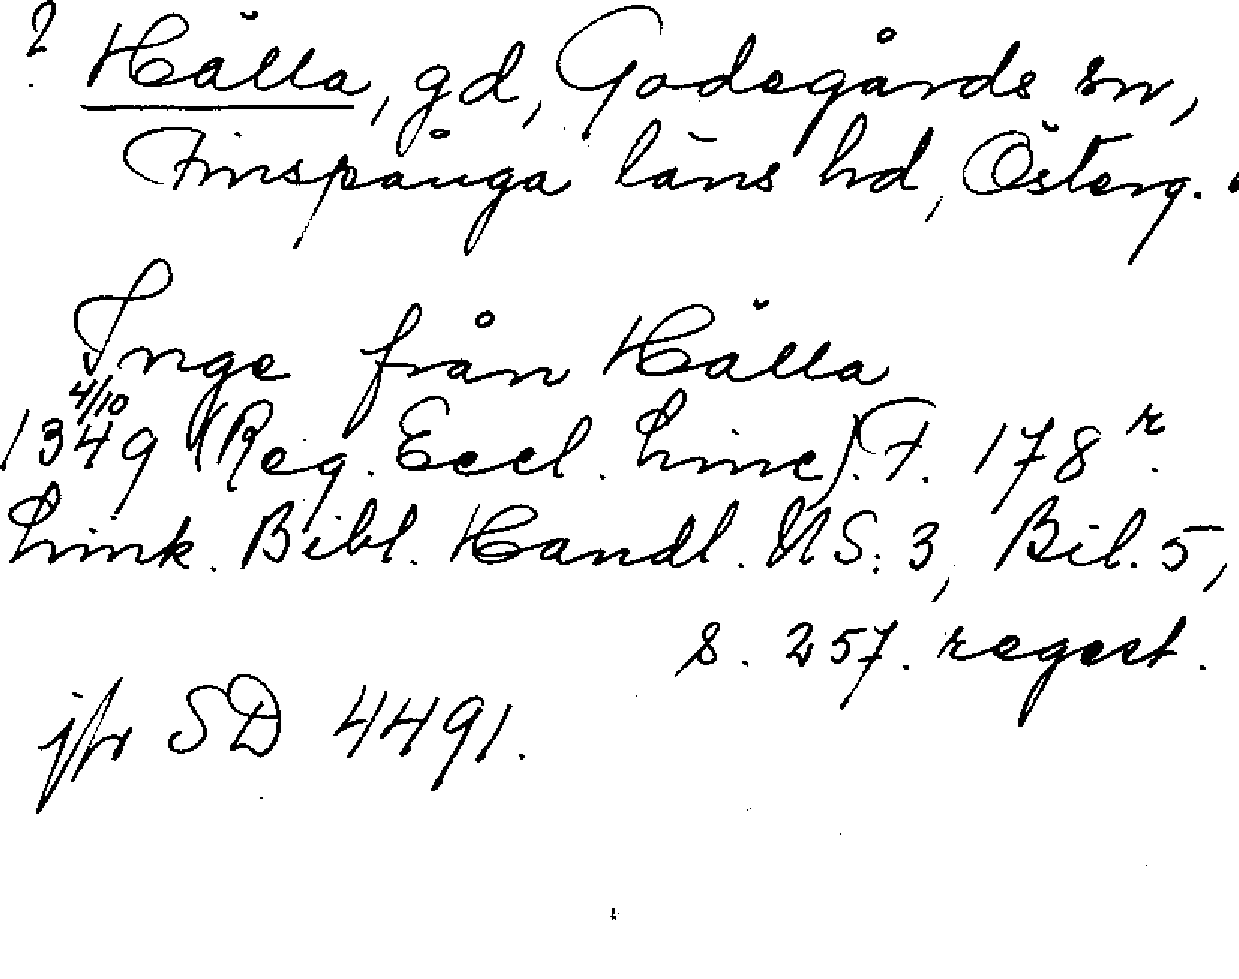 ? Hälla, gd, Godegårds sn,
Finspånga läns hd, Österg.
Inge från Hälla
4/10
1349 (Reg. Eccl. Linc). F. 178 r.
Link. Bibl. Handl. NS: 3, Bil. 5,
s. 257. regest.
jfr SD 4491.